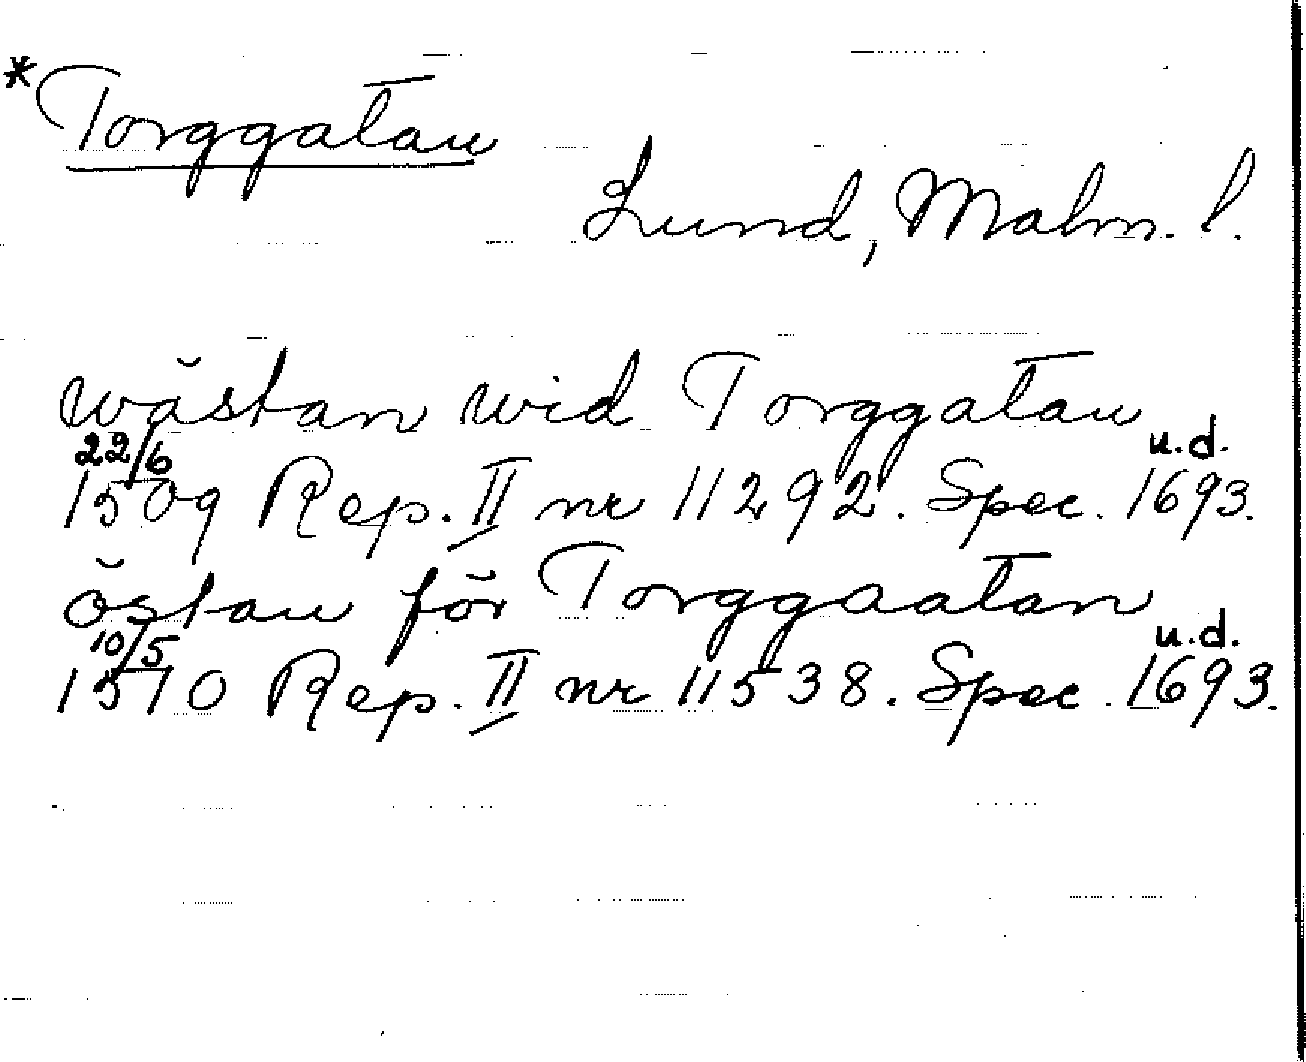 *Torggatan
Lund, Malm. l.
wästan wid Torggatan
22/6 u.d.
1509 Rep. II nr 11292. Spec. 1693.
östan för Torggaatan
10/5 u.d.
1510 Rep. II nr 11538. Spec. 1693.